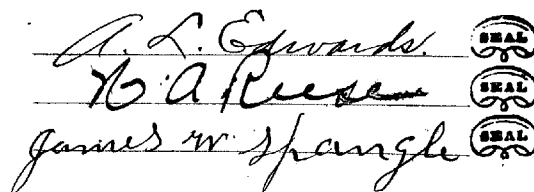 A. L. Edwards. SEAL
N. A Reese SEAL
James W. Spangle SEAL